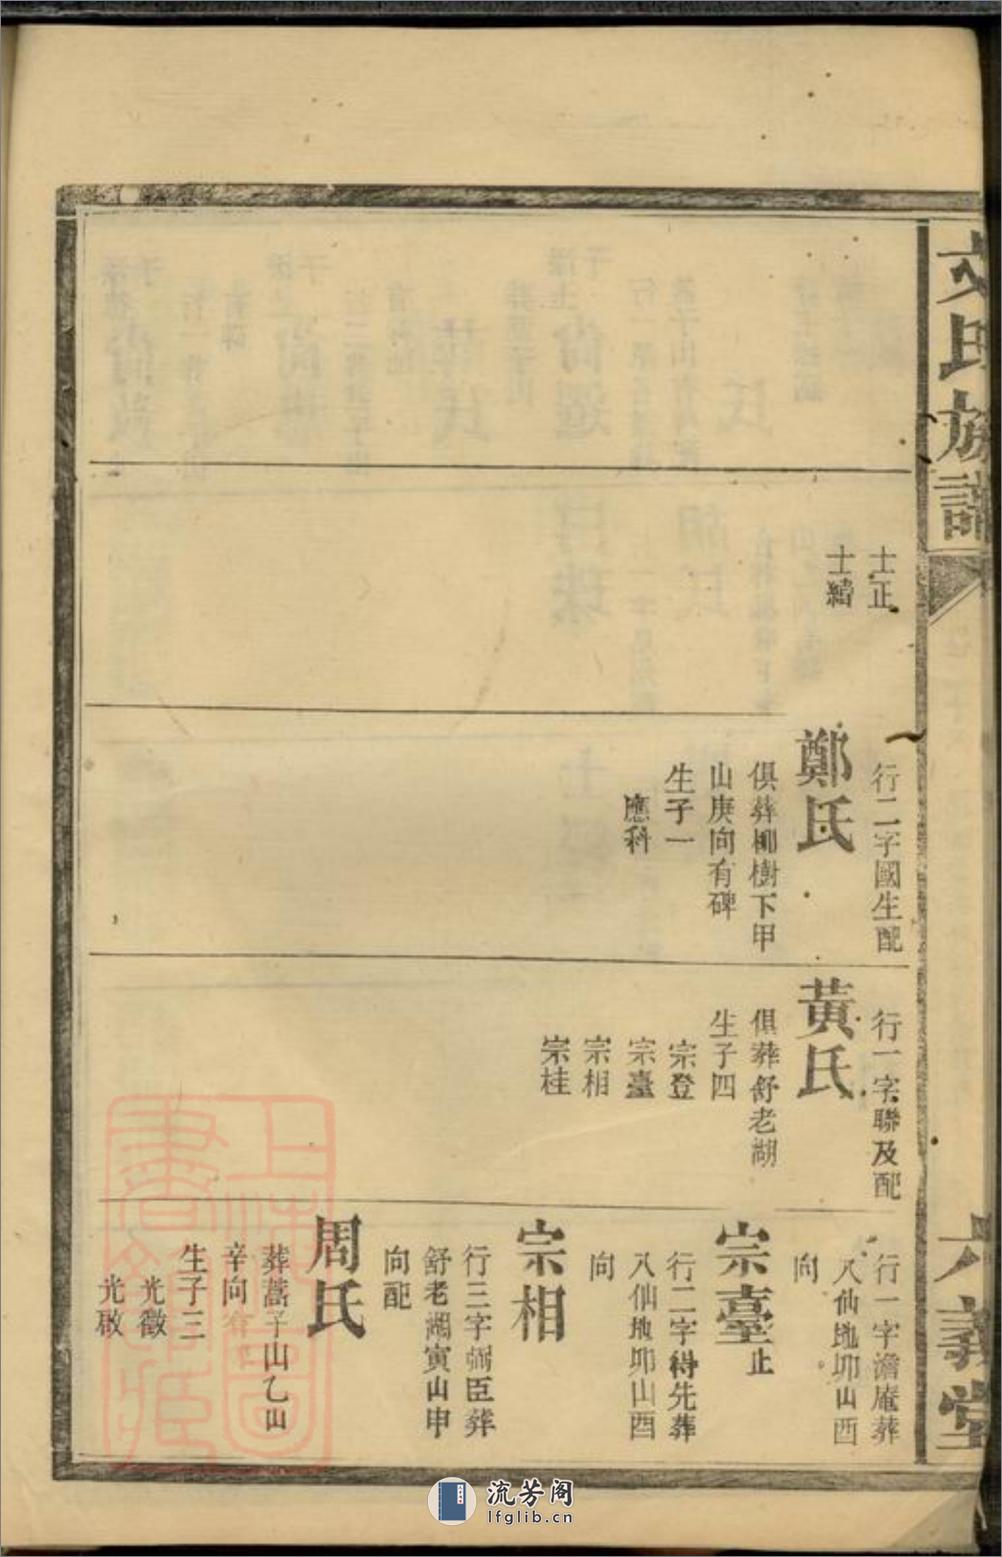 文氏族譜
六義堂
士正
士績
行二字國生配
鄭氏
俱葬柳樹下甲
山庚向有碑
生子一
應科
行一字聯及配
黃氏
俱葬舒老湖
生子四
宗登
宗臺
宗相
宗桂
行一字澹庵葬
八仙地卯山酉
向
宗臺止
行二字得先葬
八仙地卯山酉
向
宗相
行三字弼臣葬
舒老湖寅山申
向配
周氏
葬蒿子山乙山
辛向
生子三
光徵
光啟
上海圖書館藏
流芳阁
lfglib.cn